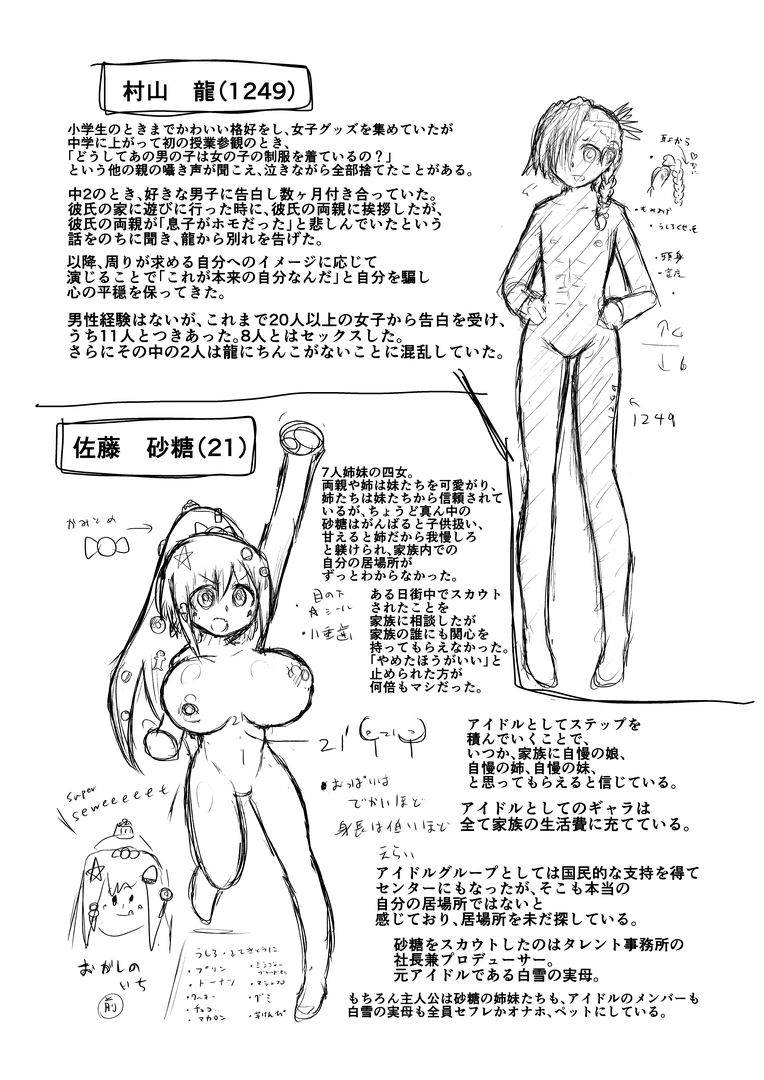 村山　龍(1249)
小学生のときまでかわいい格好をし、女子グッズを集めていたが
中学に上がって初の授業参観のとき、
「どうしてあの男の子は女の子の制服を着ているの？」
という他の親の囁き声が聞こえ、泣きながら全部捨てたことがある。
中2のとき、好きな男子に告白し数ヶ月付き合っていた。
彼氏の家に遊びに行った時に、彼氏の両親に挨拶したが、
彼氏の両親が「息子がホモだった」と悲しんでいたという
話をのちに聞き、龍から別れを告げた。
以降、周りが求める自分へのイメージに応じて
演じることで「これが本来の自分なんだ」と自分を騙し
心の平穏を保ってきた。
男性経験はないが、これまで20人以上の女子から告白を受け、
うち11人とつきあった。8人とはセックスした。
さらにその中の2人は龍にちんこがないことに混乱していた。
耳から
・頭身
1249
1249
佐藤　砂糖(21)
かみどめ
7人姉妹の四女。
両親や姉は妹たちを可愛がり、
姉たちは妹たちから信頼されて
いるが、ちょうど真ん中の
砂糖はがんばると子供扱い、
甘えると姉だから我慢しろ
と躾けられ、家族内での
自分の居場所が
ずっとわからなかった。
・目の下
☆シール
・八重歯
ある日街中でスカウト
されたことを
家族に相談したが
家族の誰にも関心を
持ってもらえなかった。
「やめたほうがいい」と
止められた方が
何倍もマシだった。
21
21
・おっぱいは
でかいほど
身長は低いほど
えらい
アイドルとしてステップを
積んでいくことで、
いつか、家族に自慢の娘、
自慢の姉、自慢の妹、
と思ってもらえると信じている。
アイドルとしてのギャラは
全て家族の生活費に充てている。
アイドルグループとしては国民的な支持を得て
センターにもなったが、そこも本当の
自分の居場所ではないと
感じており、居場所を未だ探している。
砂糖をスカウトしたのはタレント事務所の
社長兼プロデューサー。
元アイドルである白雪の実母。
もちろん主人公は砂糖の姉妹たちも、アイドルのメンバーも
白雪の実母も全員セフレかオナホ、ペットにしている。
super
seweeeeet
おかしの
いち
前
・プリン
・ドーナツ
・クッキー
・チョコ
・マカロン
・グミ